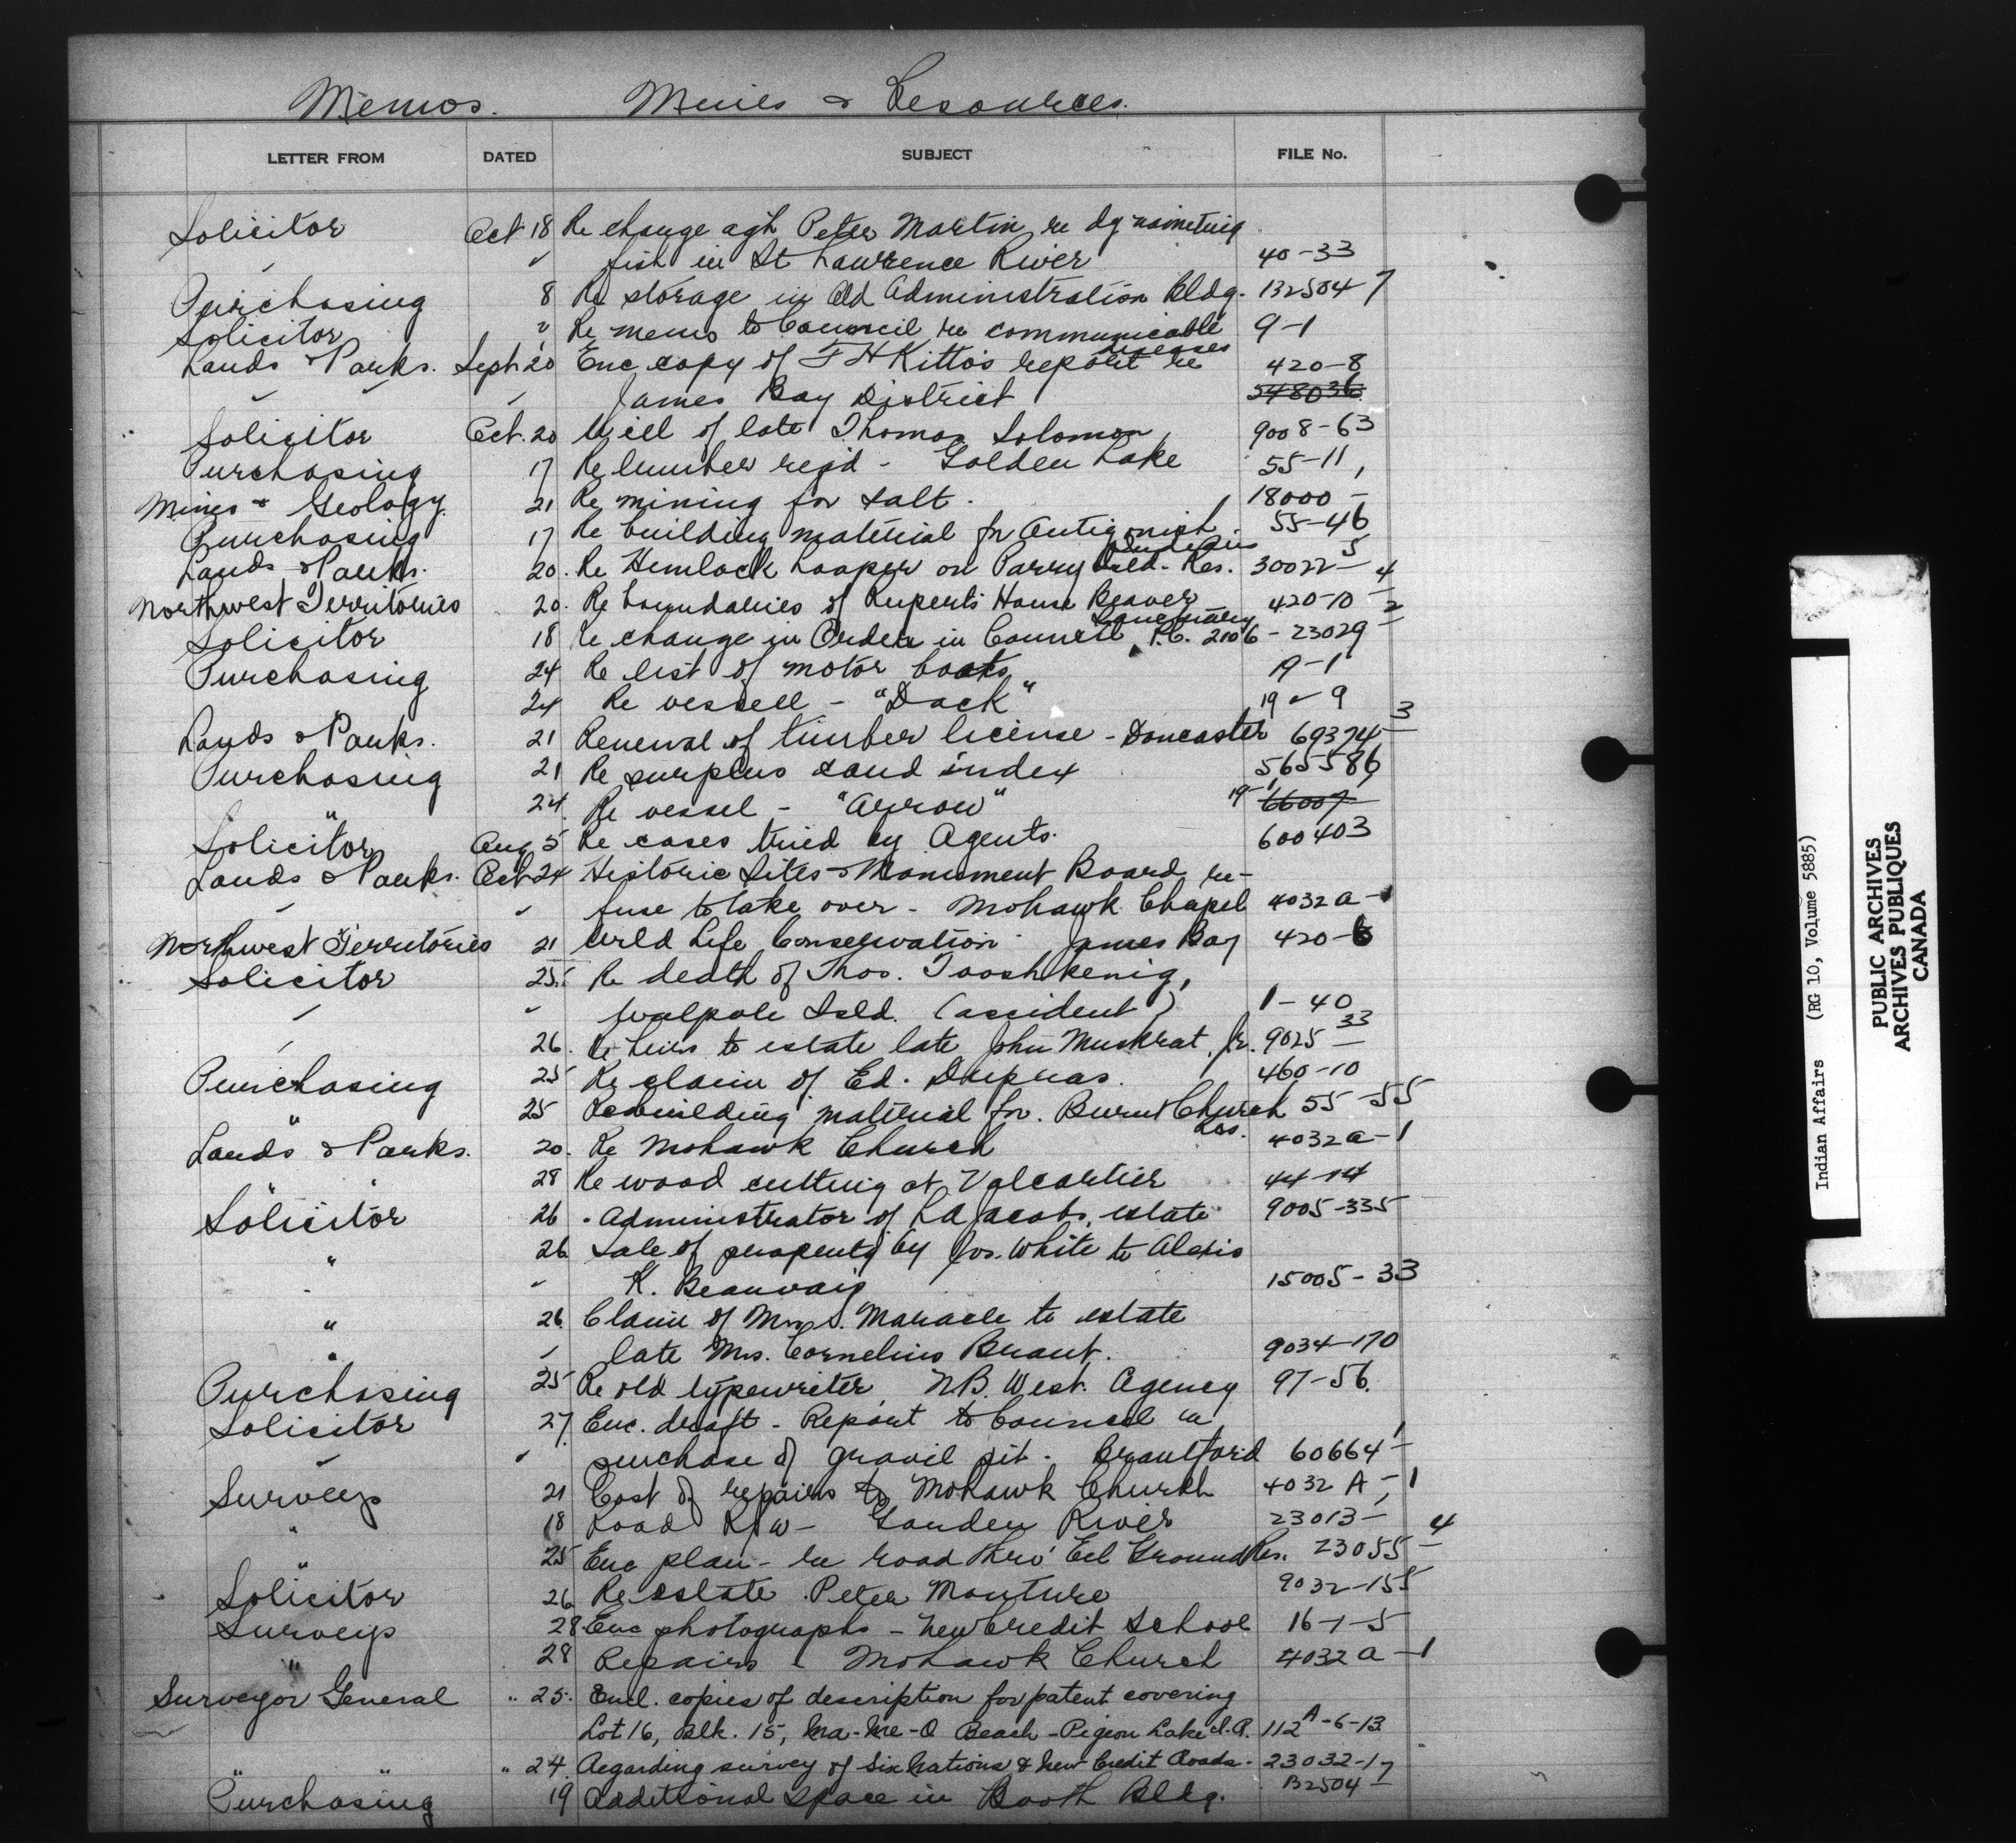 Memos. Mines & Resources.
LETTER FROM DATED SUBJECT FILE No.
Solicitor Oct 18 Re charge agst Peter Martin re dynamiting
" " fish in St Lawrence River 40-33
Purchasing 8 Re storage in Old Administration Bldg. 132504-7
Solicitor " Re memo to Council re communicable diseases 9-1
Lands & Parks. Sept 20 Enc copy of F H Kitto's report re 420-8
" " " James Bay District 548036
Solicitor Oct. 20 Will of late Thomas Solomon 9008-63
Purchasing 17 Re lumber reqd - Golden Lake 55-11
Mines & Geology 21 Re mining for salt. 18000-
Purchasing 17 Re building material for Antigonish Indians 55-46
Lands & Parks. 20. Re Hemlock Looper on Parry Isld. Res. 30022-5
Northwest Territories 20. Re boundaries of Rupert's House Beaver Sanctuary 420-10-4
Solicitor 18 Re change in Order in Council P.C. 2106 - 23029-2
Purchasing 24 Re list of motor boats 19-1
24 Re vessell - "Dack" 19-9
Lands & Parks. 21 Renewal of timber license - Doncaster 69374-3
Purchasing 21 Re surplus land index 565586
" 24. Re vessel - "Arrow" 19-1 66007
Solicitor Aug 5 Re cases tried by Agents. 600403
Lands & Parks. Oct 24 Historic Sites & Monument Board re-
" " fuse to take over - Mohawk Chapel 4032 A-1
Northwest Territories 21 Wild Life Conservation - James Bay 420-6
Solicitor 25. Re death of Thos. Tooshkenig,
" " Walpole Isld. (accident) 1-40
" 26. Re heirs to estate late John Muskrat, Jr. 9025-33
Purchasing 25 Re claim of Ed. 460-10
" 25 Re building material for Burnt Church Res. 55-55
Lands & Parks. 20. Re Mohawk Church 4032 a-1
" " 28 Re wood cutting at Valcartier 44-14
Solicitor 26 Administrator of Jacobs, estate 9005-335
" 26 Sale of property by Jos. White to Alexis
" " K. Beauvais 15005-33
" 26 Claim of Mrs S. Maracle to estate
" " late Mrs. Cornelius Brant. 9034-170
Purchasing 25 Re old typewriter N.B. West. Agency 97-56.
Solicitor 27. Enc. draft - Report to Council re
" " purchase of gravil pit - Brantford 60664-1
Surveys 21 Cost of repairs to Mohawk Church 4032 A-1
" 18 Road R/w - Garden River 23013-1
" 25 Enc plan - re road thro' Eel Ground Res. 23055-4
Solicitor 26 Re estate Peter Monture 9032-155
Surveys 28 Enc photographs - New Credit School 16-1-5
" 28 Repairs - Mohawk Church 4032 a-1
Surveyor General " 25. Encl. copies of description for patent covering
Lot 16, Blk. 15, Ma-Me-O Beach - Pigeon Lake I.R. 112 A-6-13
" " " 24. Regarding survey of Six Nations & New Credit Roads. 23032-1
Purchasing 19 Additional space in Booth Bldg. 132504-7
Indian Affairs (RG 10, Volume 5885)
PUBLIC ARCHIVES
ARCHIVES PUBLIQUES
CANADA